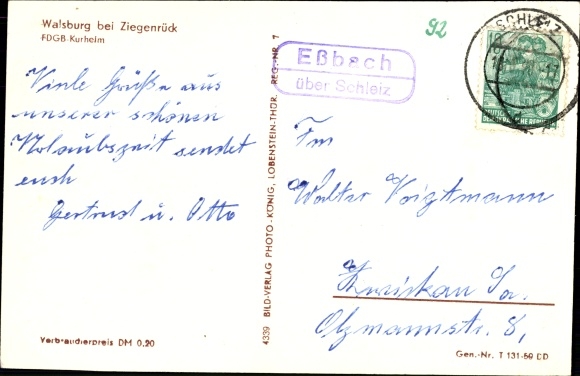 Walsburg bei Ziegenrück
FDGB-Kurheim
Viele Grüße aus
unserer schönen
Urlaubszeit sendet
euch
Gertrud u. Otto
Verbraucherpreis DM 0.20
4339 BILD-VERLAG PHOTO-KÖNIG, LOBENSTEIN-THÜR. REG.-NR. 7
92
Eßbach
über Schleiz
SCHLEIZ
Fm
Walter Voigtmann
Zwickau Sa.
Olzmannstr. 8,
Gen.-Nr. T 131-59 DD